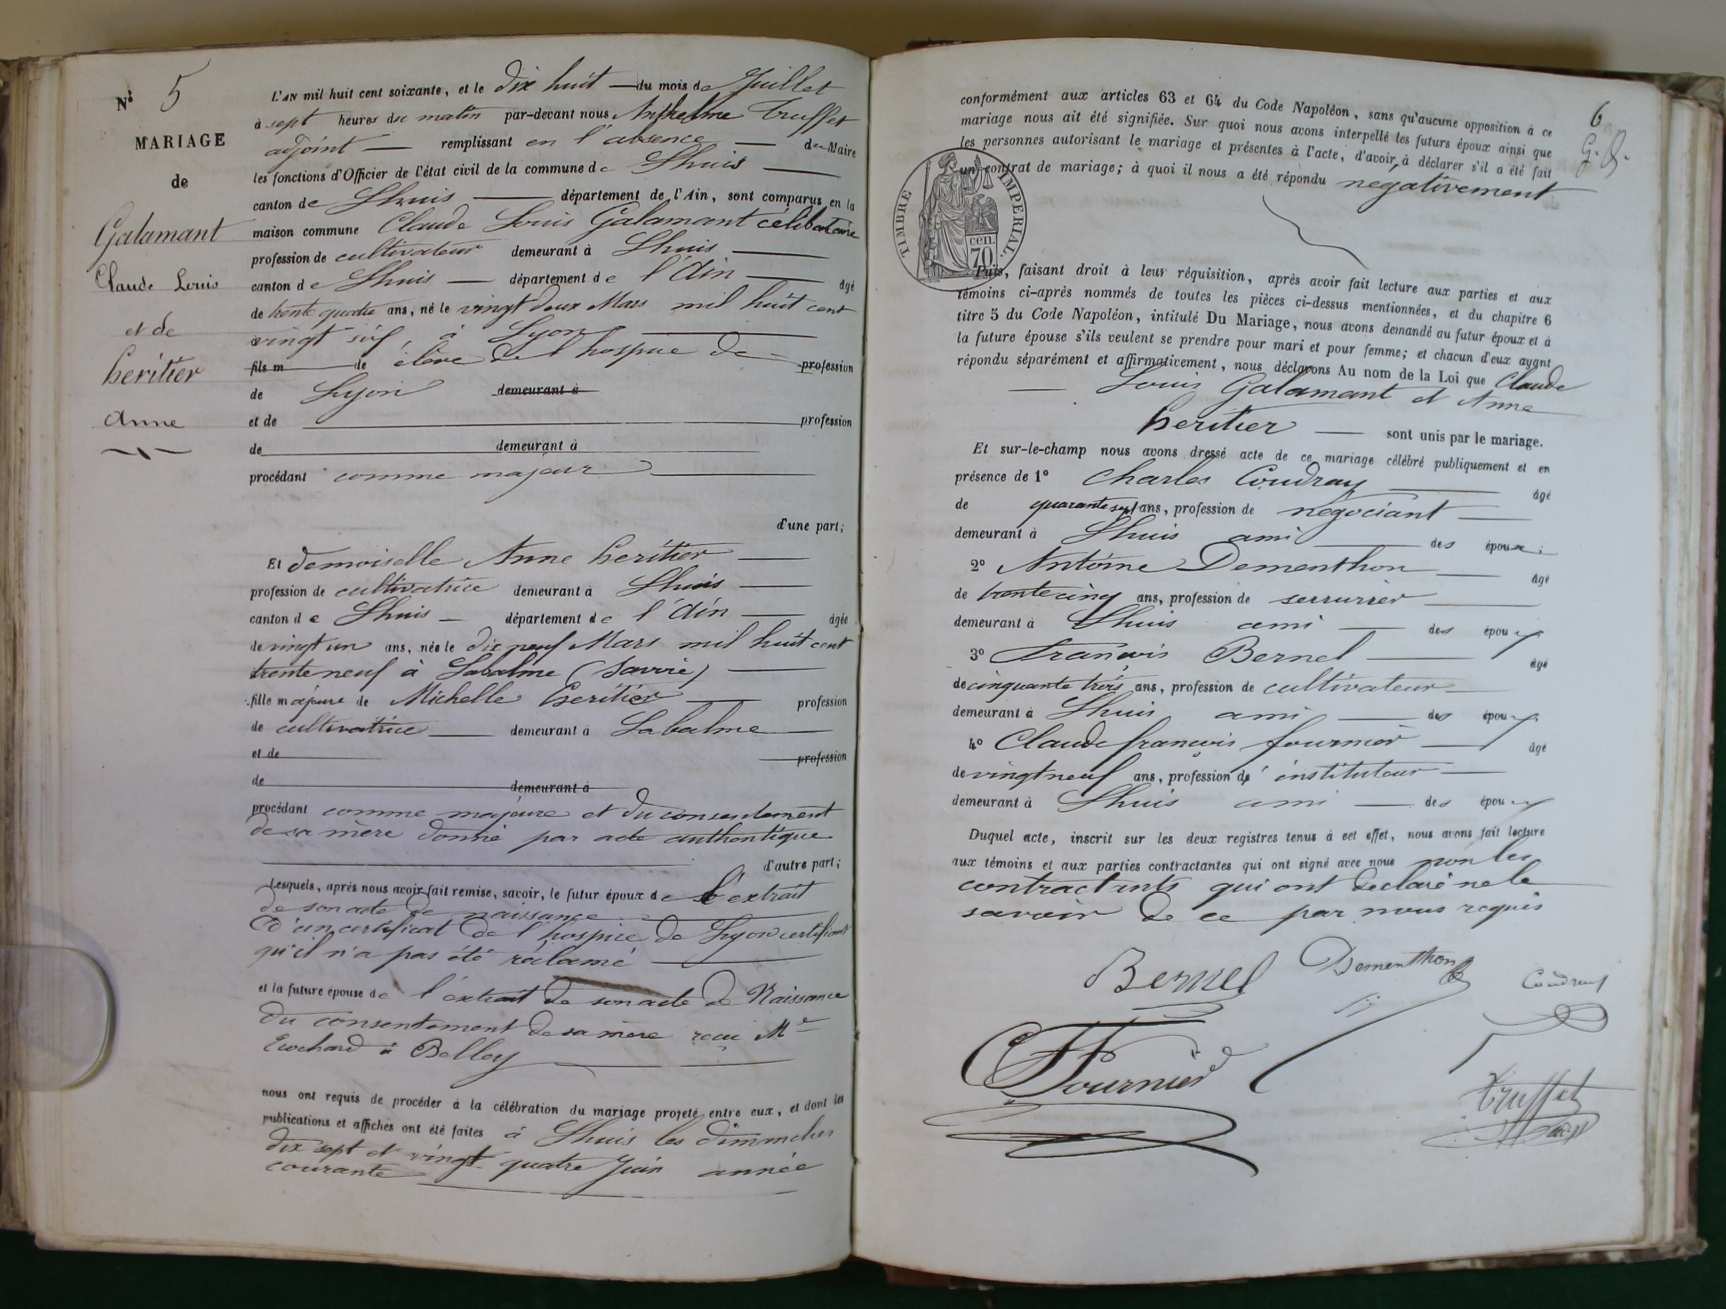 N° 5
MARIAGE
de
Galamant
Claude Louis
et de
héritier
Anne
L'AN mil huit cent soixante, et le dix huit du mois de Juillet
à sept heures du matin par-devant nous Anthelme Truffet
adjoint remplissant en l'absence du Maire
les fonctions d'Officier de l'état civil de la commune de Lhuis
canton de Lhuis département de l'Ain, sont comparus en la
maison commune Claude Louis Galamant célibataire
profession de cultivateur demeurant à Lhuis
canton de Lhuis département de l'Ain âgé
de trente quatre ans, né le vingt deux Mars mil huit cent
vingt six, à Lyon
fils m de élève de l'hospice de profession
de Lyon demeurant à
et de profession
de demeurant à
procédant comme majeur
d'une part;
Et demoiselle Anne héritier
profession de cultivatrice demeurant à Lhuis
canton de Lhuis département de l'Ain âgée
de vingt un ans, née le dix neuf Mars mil huit cent
trente neuf à Labalme (Savoie)
fille majeure de Michelle héritier profession
de cultivatrice demeurant à Labalme
et de profession
de demeurant à
procédant comme majeure et du consentement
de sa mere donné par acte authentique
d'autre part;
Lesquels, après nous avoir fait remise, savoir, le futur époux de l'extrait
de son acte de naissance
d'un certificat de l'hospice de Lyon certifiant
qu'il n'a pas été réclamé
et la future épouse de l'extrait de son acte de Naissance
du consentement de sa mere reçu Me
à Belley
nous ont requis de procéder à la célébration du mariage projeté entre eux, et dont les
publications et affiches ont été faites à Lhuis les dimanches
dix sept et vingt quatre Juin année
courante
6
conformément aux articles 63 et 64 du Code Napoléon, sans qu'aucune opposition à ce
mariage nous ait été signifiée. Sur quoi nous avons interpellé les futurs époux ainsi que
les personnes autorisant le mariage et présentes à l'acte, d'avoir à déclarer s'il a été fait
un contrat de mariage; à quoi il nous a été répondu negativement
TIMBRE IMPERIAL
70 cen.
Puis, faisant droit à leur réquisition, après avoir fait lecture aux parties et aux
témoins ci-après nommés de toutes les pièces ci-dessus mentionnées, et du chapitre 6
titre 5 du Code Napoléon, intitulé Du Mariage, nous avons demandé au futur époux et à
la future épouse s'ils veulent se prendre pour mari et pour femme; et chacun d'eux ayant
répondu séparément et affirmativement, nous déclarons Au nom de la Loi que Claude
Louis Galamant et Anne
héritier sont unis par le mariage.
Et sur-le-champ nous avons dressé acte de ce mariage célébré publiquement et en
présence de 1° Charles Coudray âgé
de quarante sept ans, profession de négociant
demeurant à Lhuis ami des époux;
2° Antoine Dementhon âgé
de trente cinq ans, profession de serrurier
demeurant à Lhuis ami des époux
3° François Bernel âgé
de cinquante trois ans, profession de cultivateur
demeurant à Lhuis ami des époux
4° Claude françois fournier âgé
de vingt neuf ans, profession d'instituteur
demeurant à Lhuis ami des époux
Duquel acte, inscrit sur les deux registres tenus à cet effet, nous avons fait lecture
aux témoins et aux parties contractantes qui ont signé avec nous non les
contractants qui ont déclaré ne le
savoir de ce par nous requis
Bernel Dementhon Coudray
Fournier
Truffet